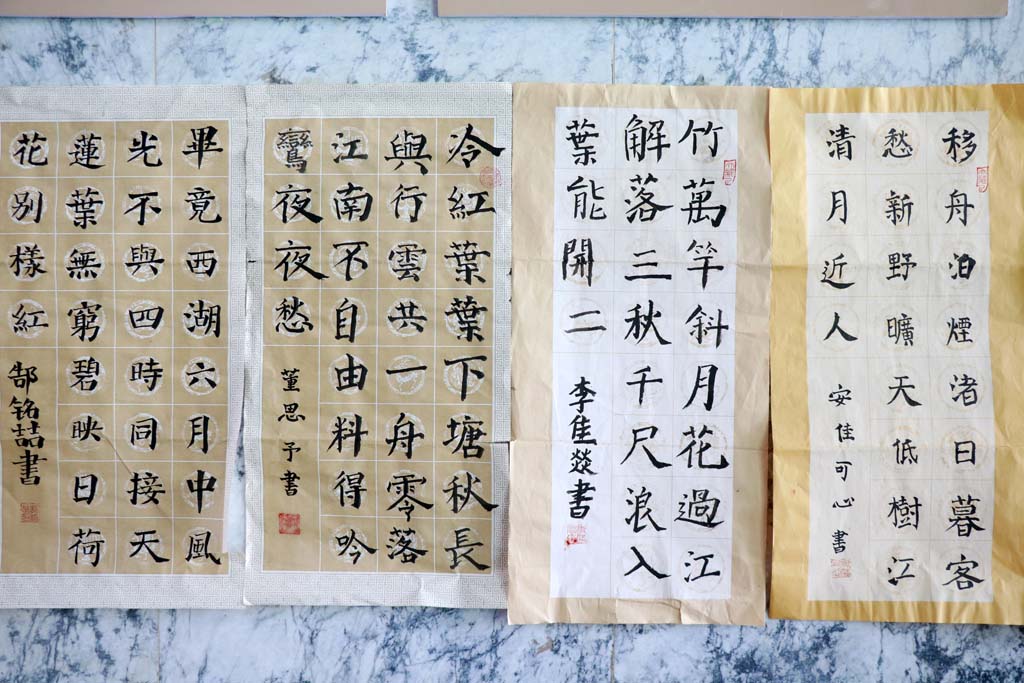 移舟泊煙渚日暮客
愁新野曠天低樹江
清月近人
安佳可心書
竹萬竿斜月花過江
解落三秋千尺浪入
葉能開二
李佳燚書
冷紅葉葉下塘秋長
與行雲共一舟零落
江南不自由料得吟
鸞夜夜愁
董思予書
畢竟西湖六月中風
光不與四時同接天
蓮葉無窮碧映日荷
花別樣紅
郜铭喆書